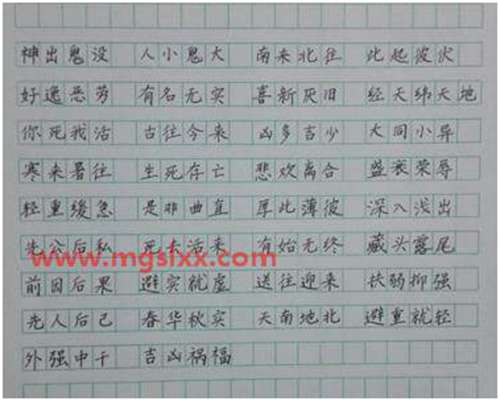 神出鬼没 人小鬼大 南来北往 此起彼伏
好逸恶劳 有名无实 喜新厌旧 经天纬天地
你死我活 古往今来 凶多吉少 大同小异
寒来暑往 生死存亡 悲欢离合 盛衰荣辱
轻重缓急 是非曲直 厚此薄彼 深入浅出
先公后私 死去活来 有始无终 藏头露尾
www.mgslxx.com
前因后果 避实就虚 送往迎来 扶弱抑强
先人后己 春华秋实 天南地北 避重就轻
外强中干 吉凶祸福